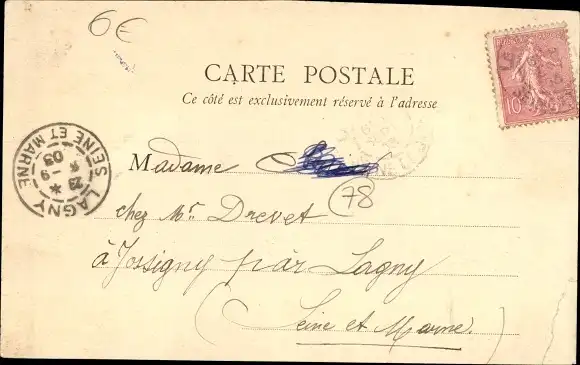 6€
CARTE POSTALE
Ce côté est exclusivement réservé à l'adresse
10
LAGNY
23 - 9
03
SEINE ET MARNE
Madame
78
chez Mr Drevet
à Jossigny par Lagny
(Seine et Marne)